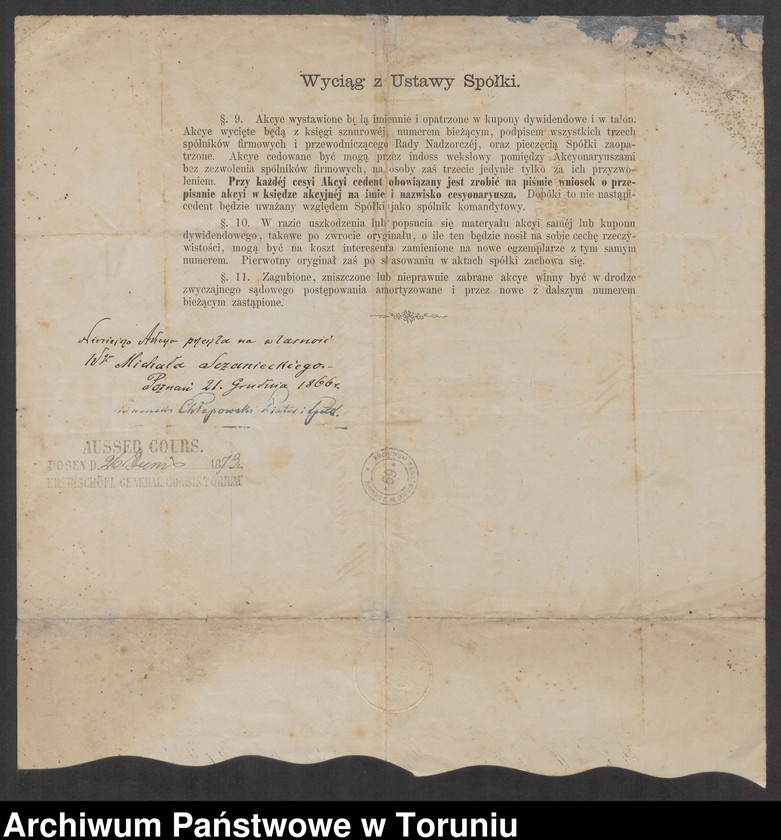 Wyciąg z Ustawy Spółki.
§. 9. Akcye wystawione będą imiennie i opatrzone w kupony dywidendowe i w talon.
Akcye wycięte będą z księgi sznurowéj, numerem bieżącym, podpisem wszystkich trzech
spólników firmowych i przewodniczącego Rady Nadzorczéj, oraz pieczęcią Spółki zaopa-
trzone. Akcye cedowane być mogą przez indoss wekslowy pomiędzy Akcyonaryuszami
bez zezwolenia spólników firmowych, na osoby zaś trzecie jedynie tylko za ich przyzwo-
leniem. Przy każdéj cesyi Akcyi cedent obowiązany jest zrobić na piśmie wniosek o prze-
pisanie akcyi w księdze akcyjnéj na imie i nazwisko cesyonaryusza. Dopóki to nie nastąpi-
cedent będzie uważany względem Spółki jako spólnik komandytowy.
§. 10. W razie uszkodzenia lub popsucia się materyału akcyi saméj lub kuponu
dywidendowego, takowe po zwrocie oryginału, o ile ten będzie nosił na sobie cechę rzeczy-
wistości, mogą być na koszt interesenta zamienione na nowe egzemplarze z tym samym
numerem. Pierwotny oryginał zaś po skasowaniu w aktach spółki zachowa się.
§. 11. Zagubione, zniszczone lub nieprawnie zabrane akcye winny być w drodze
zwyczajnego sądowego postępowania amortyzowane i przez nowe z dalszym numerem
bieżącym zastąpione.
Niniejsza Akcya przeszła na własność
Wgo Michała Sczanieckiego.-
Poznań 21. Grudnia 1866r.
Chłapowski Plater i
AUSSER COURS.
POSEN D. 26 Juni 1873.
ERZBISCHÖFL. GENERAL CONSISTORIUM
69
Archiwum Państwowe w Toruniu